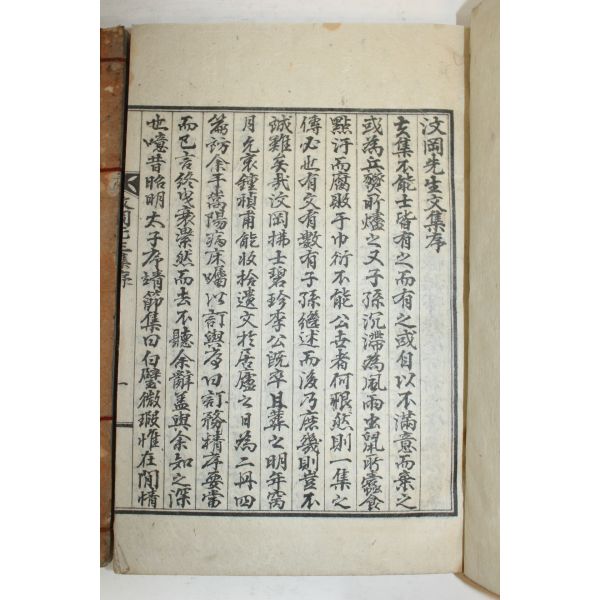 汶岡先生文集序
玄集不能士皆有之而有之或自以不滿意而棄之
或為兵燹所燼之又子孫沉滯為風雨虫鼠所蠹食
點汗而腐敗于巾衍不能公世者何恨然則一集之
傳必也有文有數有子孫繼述而後乃庶幾則豈不
誠難矣哉汶岡拂士碧珍李公旣卒且葬之明年窩
月允哀鍾禎甫能收拾遺文於居廬之日為二冊四
篇訪余于嵩陽病床囑以訂與序曰訂務精序要常
而已言終戌衰縈然而去不聽余辭盖與余知之深
也噫昔昭明太子序靖節集曰白璧微瑕惟在閒情
汶岡先生文集序
一